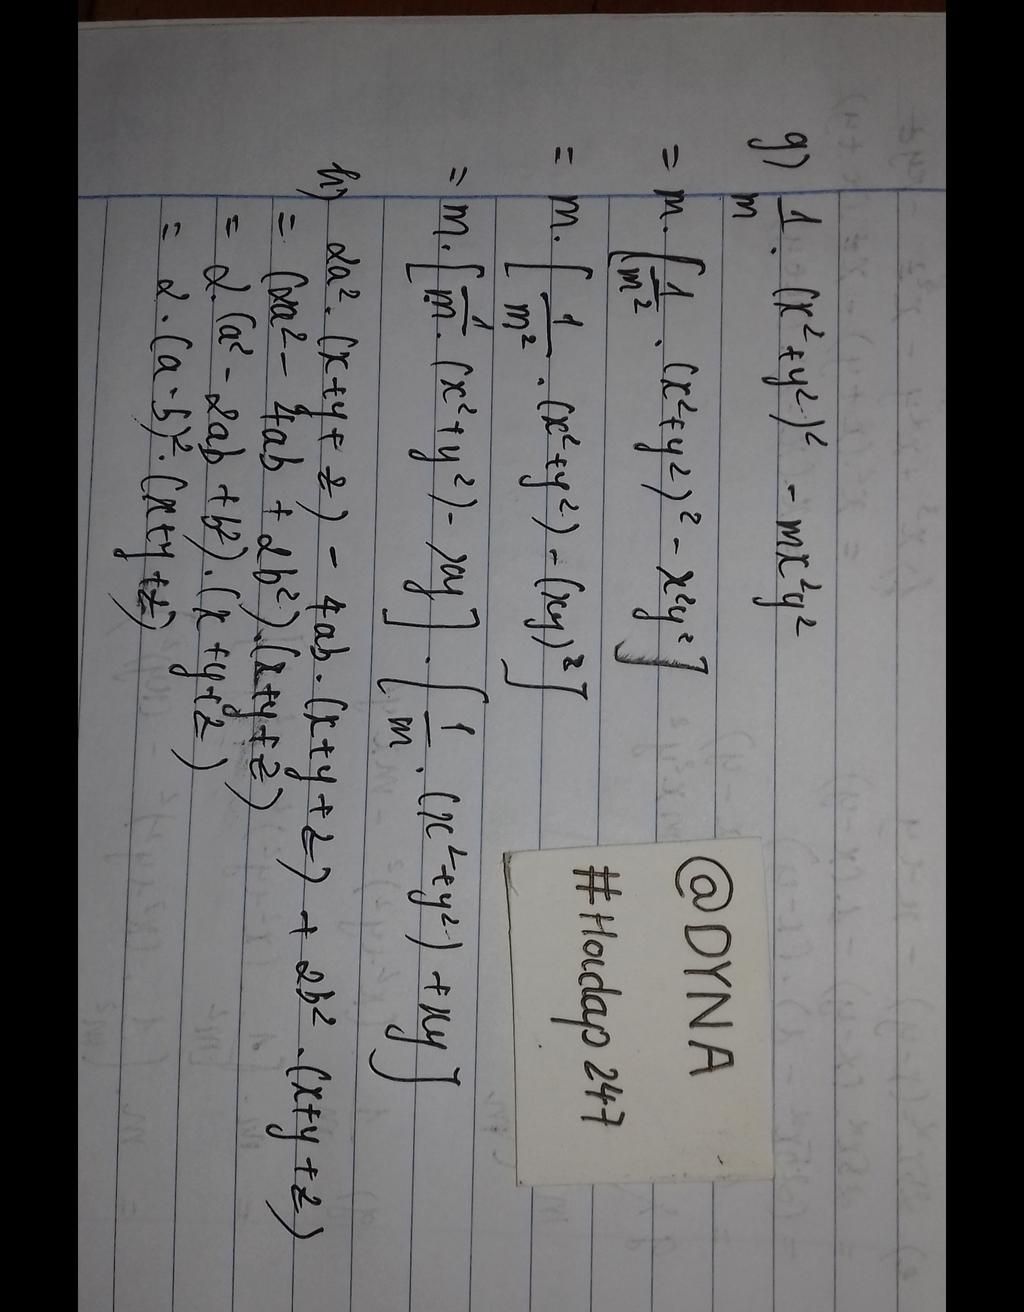 g) 1/m . (x²+y²)² - mx²y²
= m. [1/m² . (x²+y²)² - x²y²]
= m. [1/m² . (x²+y²) - (xy)²]
= m. [1/m . (x²+y²) - xy] . [1/m . (x²+y²) + xy]
h) 2a². (x+y+z) - 4ab. (x+y+z) + 2b². (x+y+z)
= (2a² - 4ab + 2b²). (x+y+z)
= 2. (a² - 2ab + b²). (x+y+z)
= 2. (a-b)². (x+y+z)
@DYNA
#Hoidap247